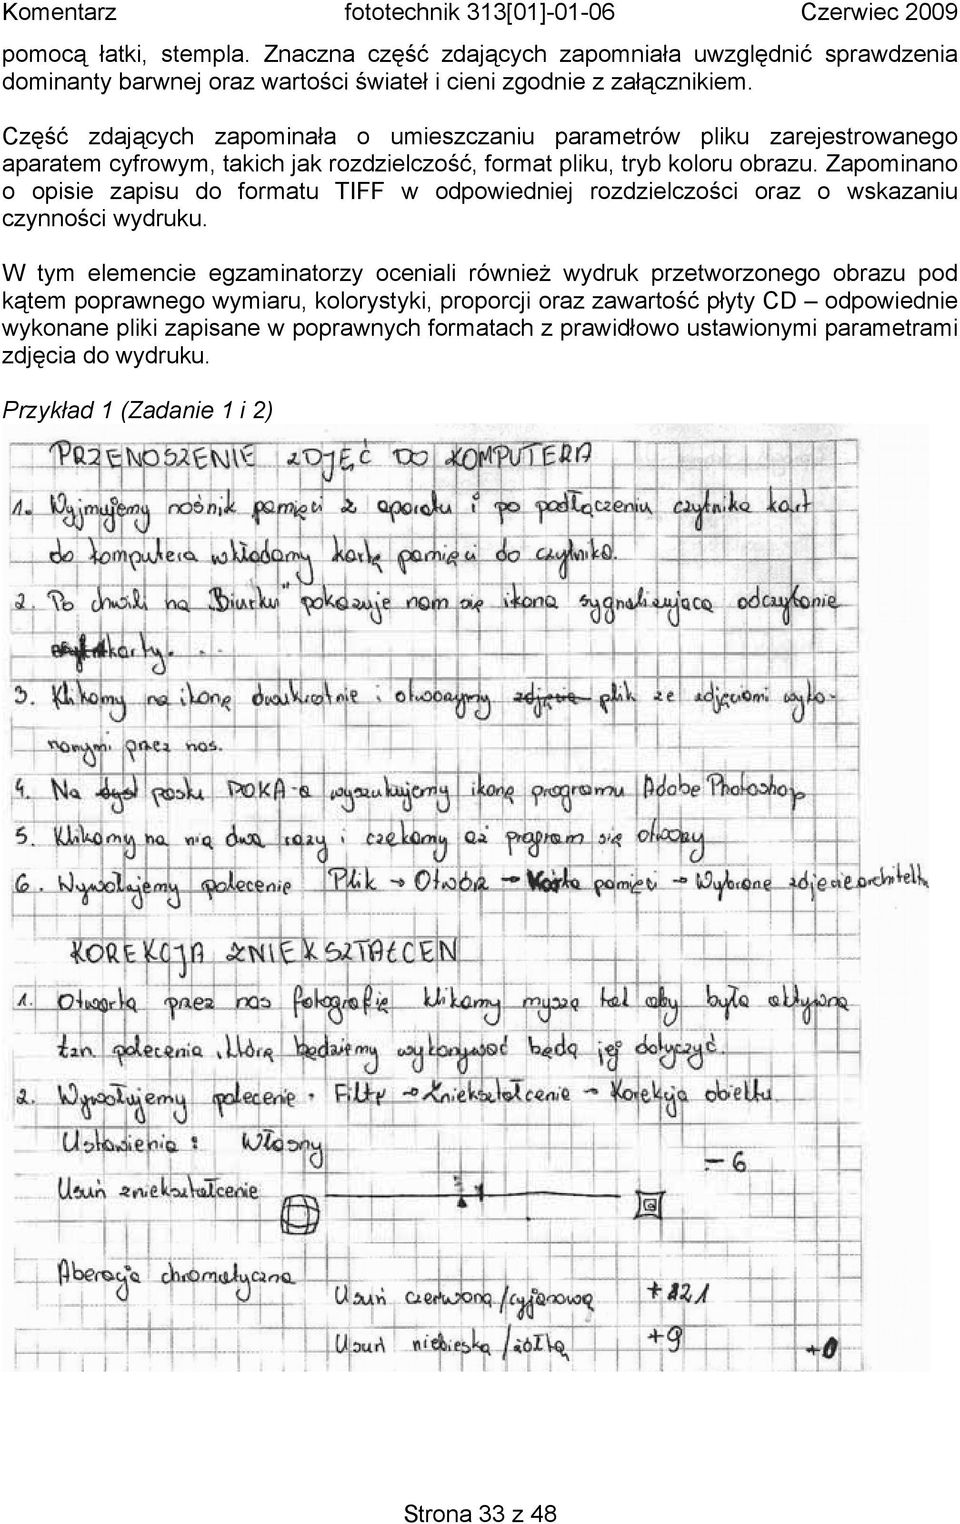 Komentarz fototechnik 313[01]-01-06 Czerwiec 2009
pomocą łatki, stempla. Znaczna część zdających zapomniała uwzględnić sprawdzenia
dominanty barwnej oraz wartości świateł i cieni zgodnie z załącznikiem.
Część zdających zapominała o umieszczaniu parametrów pliku zarejestrowanego
aparatem cyfrowym, takich jak rozdzielczość, format pliku, tryb koloru obrazu. Zapominano
o opisie zapisu do formatu TIFF w odpowiedniej rozdzielczości oraz o wskazaniu
czynności wydruku.
W tym elemencie egzaminatorzy oceniali również wydruk przetworzonego obrazu pod
kątem poprawnego wymiaru, kolorystyki, proporcji oraz zawartość płyty CD – odpowiednie
wykonane pliki zapisane w poprawnych formatach z prawidłowo ustawionymi parametrami
zdjęcia do wydruku.
Przykład 1 (Zadanie 1 i 2)
PRZENOSZENIE ZDJĘĆ DO KOMPUTERA
1. Wyjmujemy nośnik pamięci z aparatu i po podłączeniu czytnika kart
do komputera wkładamy kartę pamięci do czytnika.
2. Po chwili na „Biurku" pokazuje nam się ikona sygnalizująca odczytanie
karty.
3. Klikamy na ikonę dwukrotnie i otwoazymy zdjęcia plik ze zdjęciami wyko-
nanymi przez nas.
4. Na dysl pasku DOKA-a wyszukujemy ikonę programu Adobe Photoshop
5. Klikamy na nią dwa razy i czekamy aż program się otworzy
6. Wywołajemy polecenie Plik → Otwórz → Karta pamięci → Wybrane zdjęcie architekt
KOREKCJA ZNIEKSZTAŁCEŃ
1. Otwartą przez nas fotografię klikamy myszą tak aby była aktywna
tzn. polecenia, które będziemy wykonywać będą jej dotyczyć.
2. Wywołujemy polecenie. Filtr → Zniekształcenie → Korekcja obiektu
Ustawienia: Własny
- 6
Usuń zniekształcenie
Aberacja chromatyczna
Usuń czerwoną/cyjanową +821
Usuń niebieską/żółtą +9 +0
Strona 33 z 48